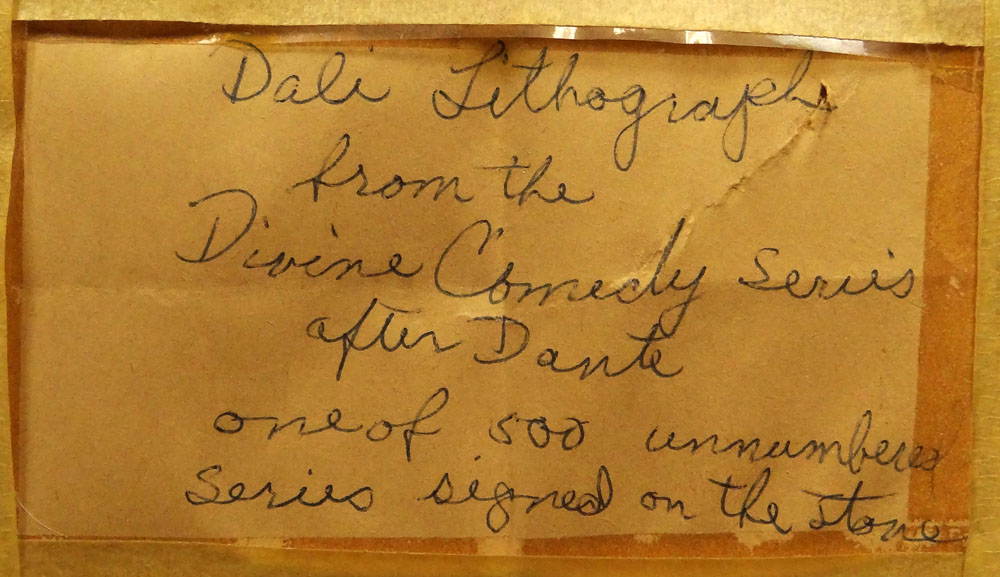 Dali Lithograph
from the
Divine Comedy Series
after Dante
one of 500 unnumbered
Series signed on the stone